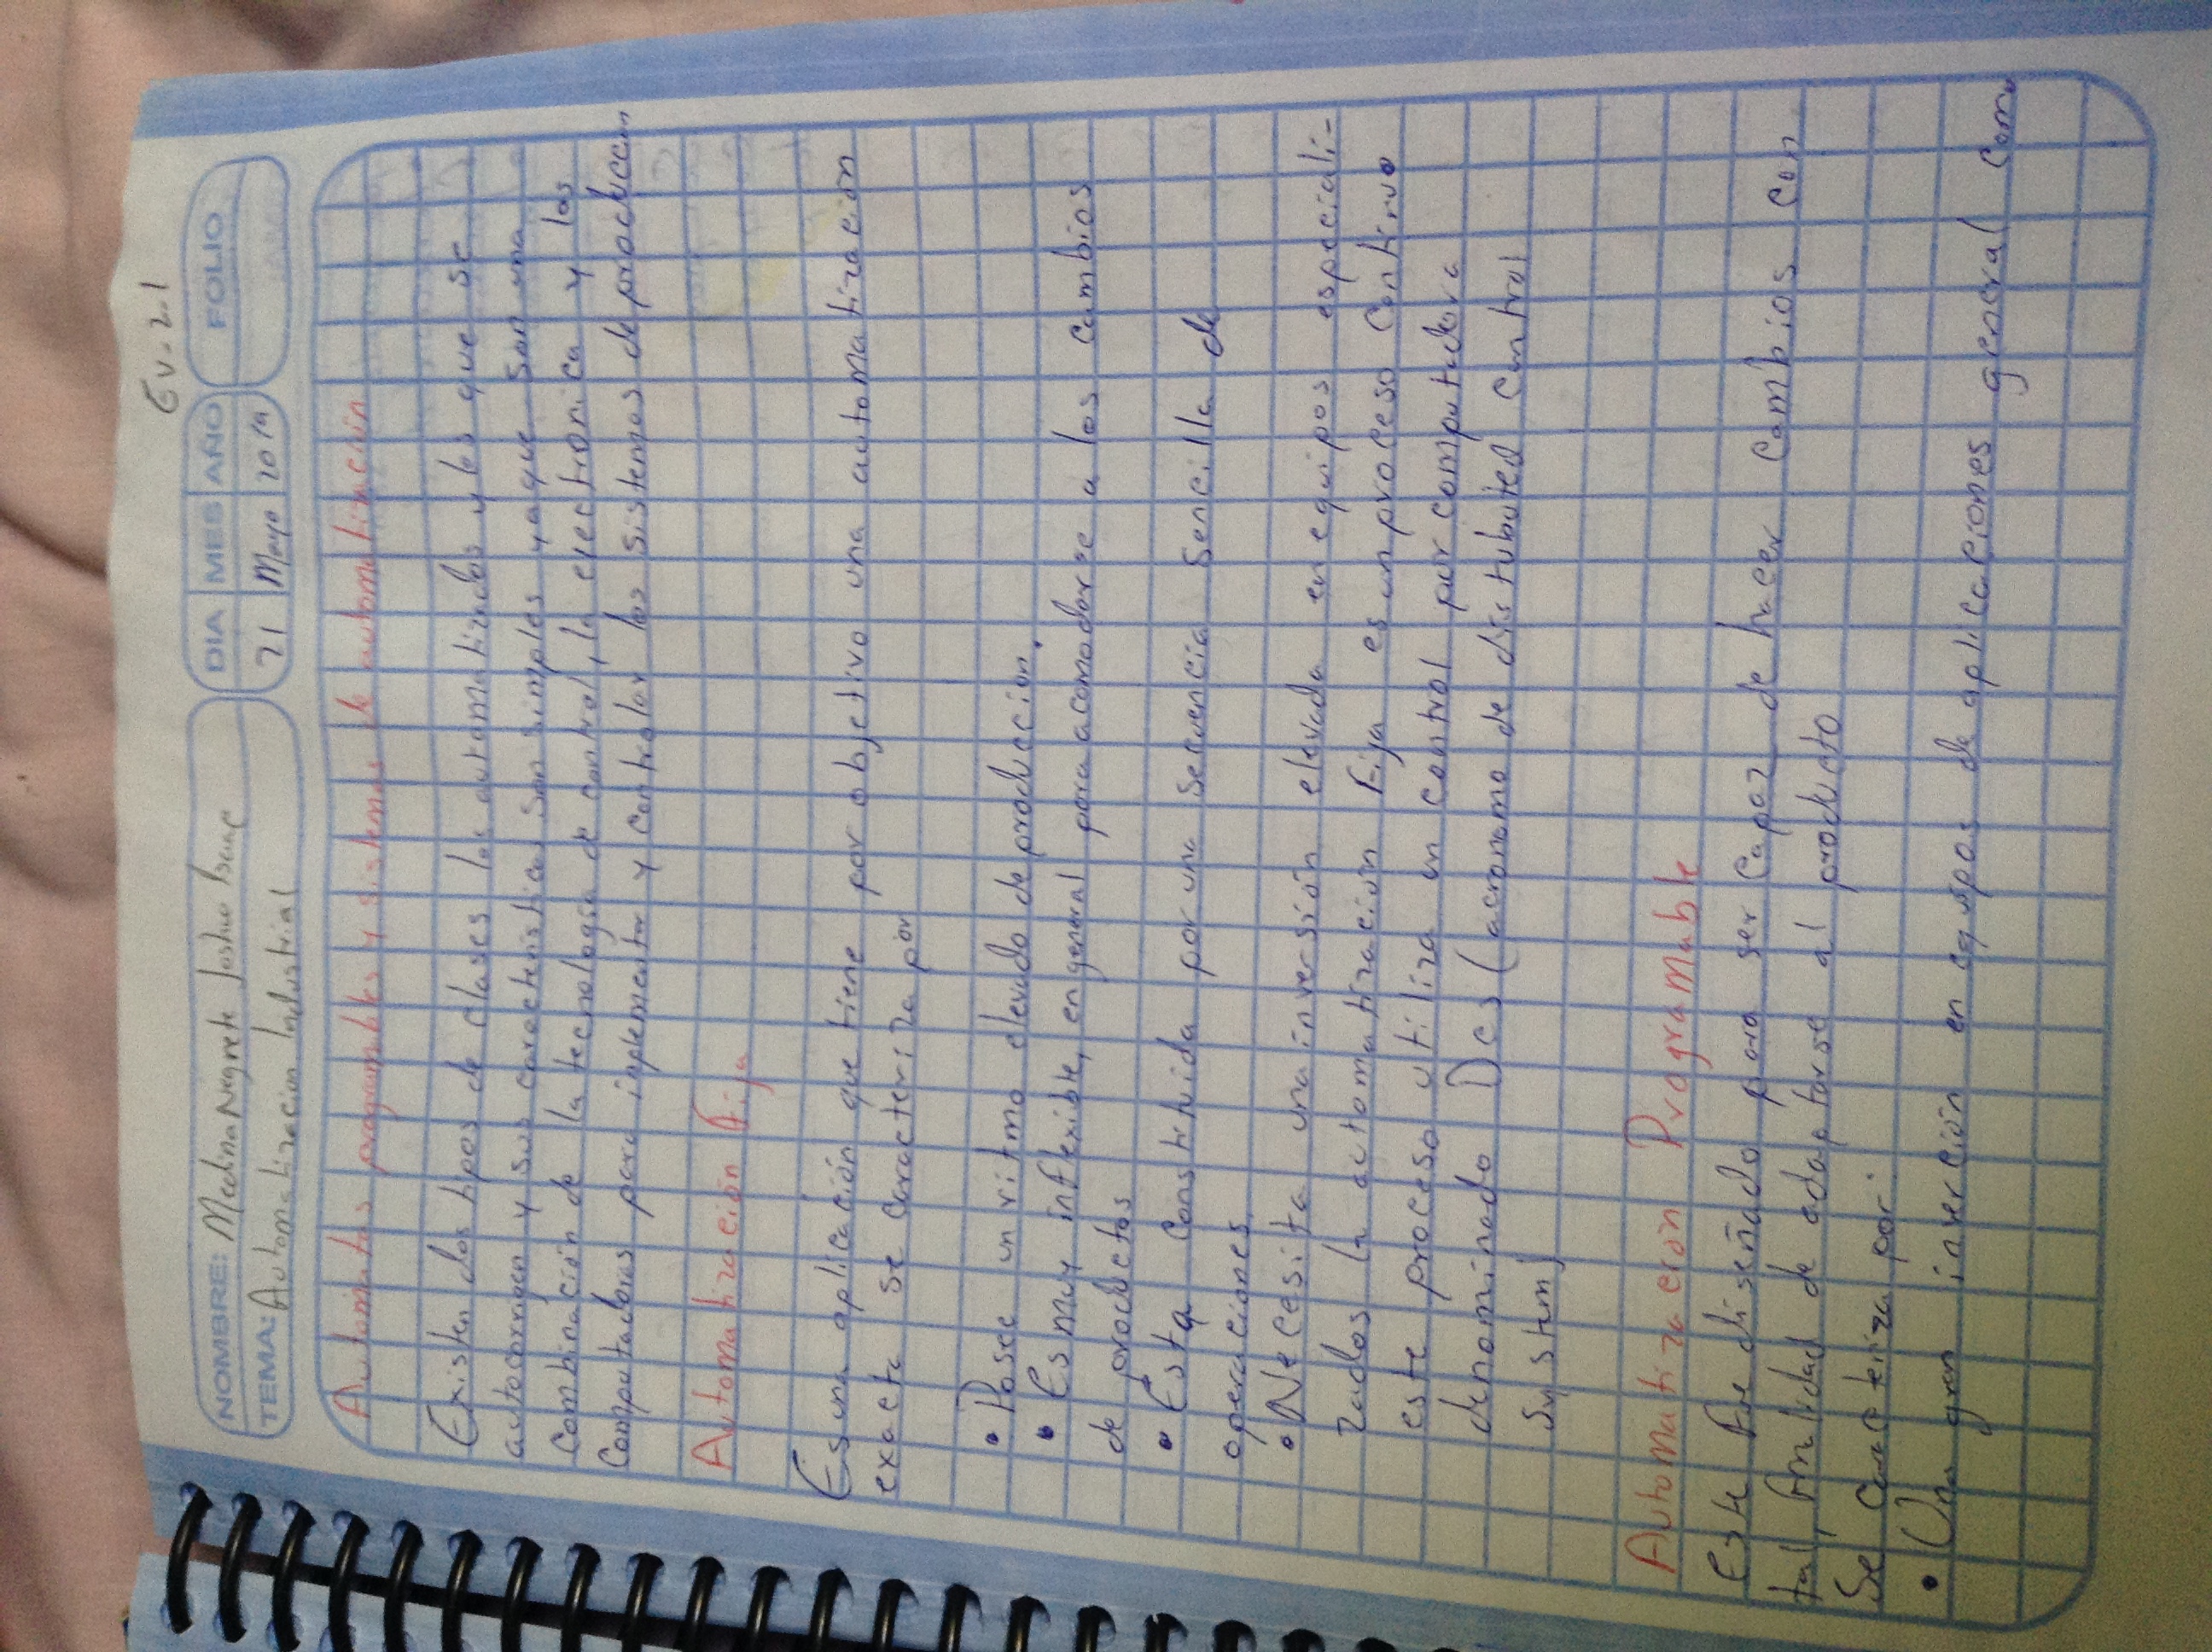 Ev. 2.1
NOMBRE: Medina Negrete Joshua Isaac
DIA MES AÑO
FOLIO
TEMA: Automatizacion Industrial
21 Mayo 2019
Automatas programables y sistemas de automatización
Existen dos tipos de clases los automatizados y los que se
autocorrigen y sus caracteristicas son simples ya que son una
combinación de la tecnologia de control, la electrónica y las
computadoras para inplementar y controlar los sistemas de produccion
Automatización Fija
Es una aplicación que tiene por objetivo una automatización
exacta se caracteriza por
• Posee un ritmo elevado de produccion.
• Es muy inflexible, en general para acomodarse a los cambios
de productos
• Esta constituida por una secuencia sencilla de
operaciones.
• Necesita una inversión elevada en equipos especiali-
zados la automatización Fija es un proceso continuo
este proceso utiliza un control por computadora
denominado Dcs (acronomo de distubuted control
System)
Automatización Programable
Este fue diseñado para ser capaz de hacer cambios con
tal, finalidad de adaptarse al producto
Se caracteriza por:
• Una gran inverción en equipos de aplicaciones general como